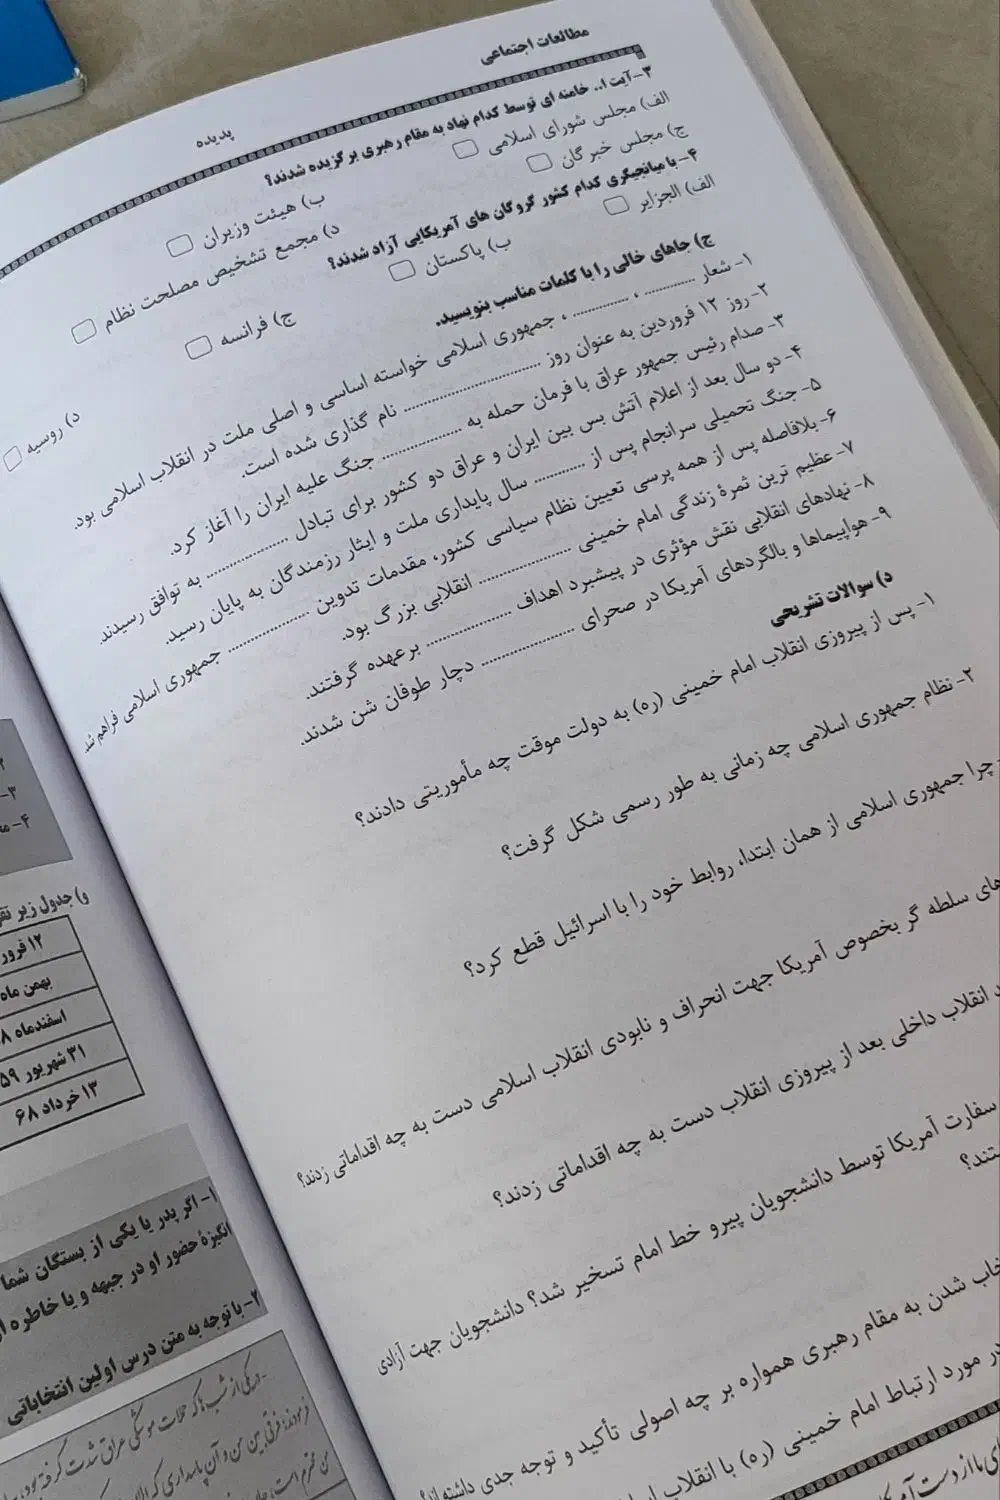 مطالعات اجتماعی
پدیده
۳- آیت ا.. خامنه ای توسط کدام نهاد به مقام رهبری برگزیده شدند؟
الف) مجلس شورای اسلامی
ب) هیئت وزیران
ج) مجلس خبرگان
د) مجمع تشخیص مصلحت نظام
۴- با میانجیگری کدام کشور گروگان های آمریکایی آزاد شدند؟
الف) الجزایر
ب) پاکستان
ج) فرانسه
د) روسیه
ج) جاهای خالی را با کلمات مناسب بنویسید.
۱- شعار ............ ، ............ ، جمهوری اسلامی خواسته اساسی و اصلی ملت در انقلاب اسلامی بود.
۲- روز ۱۲ فروردین به عنوان روز .............................. نام گذاری شده است.
۳- صدام رئیس جمهور عراق با فرمان حمله به ................. جنگ علیه ایران را آغاز کرد.
۴- دو سال بعد از اعلام آتش بس بین ایران و عراق دو کشور برای تبادل ................. به توافق رسیدند.
۵- جنگ تحمیلی سرانجام پس از ............ سال پایداری ملت و ایثار رزمندگان به پایان رسید.
۶- بلافاصله پس از همه پرسی تعیین نظام سیاسی کشور، مقدمات تدوین ................. جمهوری اسلامی فراهم شد.
۷- عظیم ترین ثمرهٔ زندگی امام خمینی .................... انقلابی بزرگ بود.
۸- نهادهای انقلابی نقش مؤثری در پیشبرد اهداف .................. برعهده گرفتند.
۹- هواپیماها و بالگردهای آمریکا در صحرای .................... دچار طوفان شن شدند.
د) سوالات تشریحی
۱- پس از پیروزی انقلاب امام خمینی (ره) به دولت موقت چه مأموریتی دادند؟
۲- نظام جمهوری اسلامی چه زمانی به طور رسمی شکل گرفت؟
چرا جمهوری اسلامی از همان ابتدا، روابط خود را با اسرائیل قطع کرد؟
های سلطه گر بخصوص آمریکا جهت انحراف و نابودی انقلاب اسلامی دست به چه اقداماتی زدند؟
انقلاب داخلی بعد از پیروزی انقلاب دست به چه اقداماتی زدند؟
سفارت آمریکا توسط دانشجویان پیرو خط امام تسخیر شد؟ دانشجویان جهت آزادی
ستند؟
خاب شدن به مقام رهبری همواره بر چه اصولی تأکید و توجه جدی داشته اند؟
در مورد ارتباط امام خمینی (ره) با انقلاب
۲
۳-
۴-
و) جدول زیر
۱۲ فرور
بهمن ماه
اسفندماه ۸
۳۱ شهریور ۵۹
۱۳ خرداد ۶۸
۱- اگر پدر یا یکی از بستگان شما
انگیزهٔ حضور او در جبهه و یا خاطره
۲- با توجه به متن درس اولین انتخاباتی